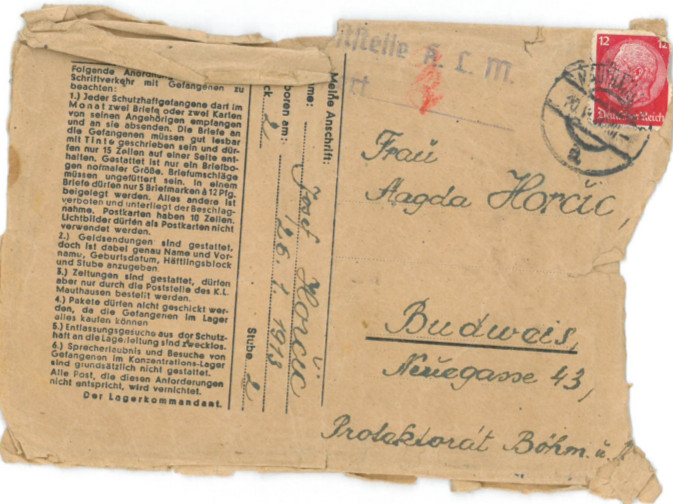 Folgende
Schriftverkehr mit Gefangenen zu
beachten:
1.) Jeder Schutzhaftgefangene darf im
Monat zwei Briefe oder zwei Karten
von seinen Angehörigen empfangen
und an sie absenden. Die Briefe an
die Gefangenen müssen gut lesbar
mit Tinte geschrieben sein und dür-
fen nur 15 Zeilen auf einer Seite ent-
halten. Gestattet ist nur ein Briefbo-
gen normaler Größe. Briefumschläge
müssen ungefüttert sein. In einem
Briefe dürfen nur 5 Briefmarken à 12 Pfg.
beigelegt werden. Alles andere ist
verboten und unterliegt der Beschlag-
nahme. Postkarten haben 10 Zeilen.
Lichtbilder dürfen als Postkarten nicht
verwendet werden.
2.) Geldsendungen sind gestattet,
doch ist dabei genau Name und Vor-
namu, Geburtsdatum, Häftlingsblock
und Stube anzugeben.
3.) Zeitungen sind gestattet, dürfen
aber nur durch die Poststelle des K.L.
Mauthausen bestellt werden.
4.) Pakete dürfen nicht geschickt wer-
den, da die Gefangenen im Lager
alles kaufen können
5.) Entlassungsgesuche aus der Schutz-
haft an die Lagerleitung sind zwecklos.
6.) Sprecherlaubnis und Besuche von
Gefangenen im Konzentrations-Lager
sind grundsätzlich nicht gestattet.
Alle Post, die diesen Anforderungen
nicht entspricht, wird vernichtet.
Der Lagerkommandant.
Meine Anschrift:
me: Josef Horčic
boren am: 26. 1. 1913
ck 2 Stube 2
tstelle K. L. M.
rt
12 12
Deutsches Reich
Frau
Magda Horčic,
Budweis,
Neuegasse 43,
Protektorát Böhm. u.